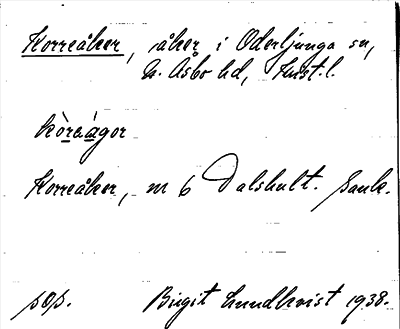 Korreåker, åker i Oderljunga sn,
N. Åsbo hd, Krist.l.
kòreágor
Korreåker, m 6 Dalshult. Sank.
pop. Birgit Lundkvist 1938.